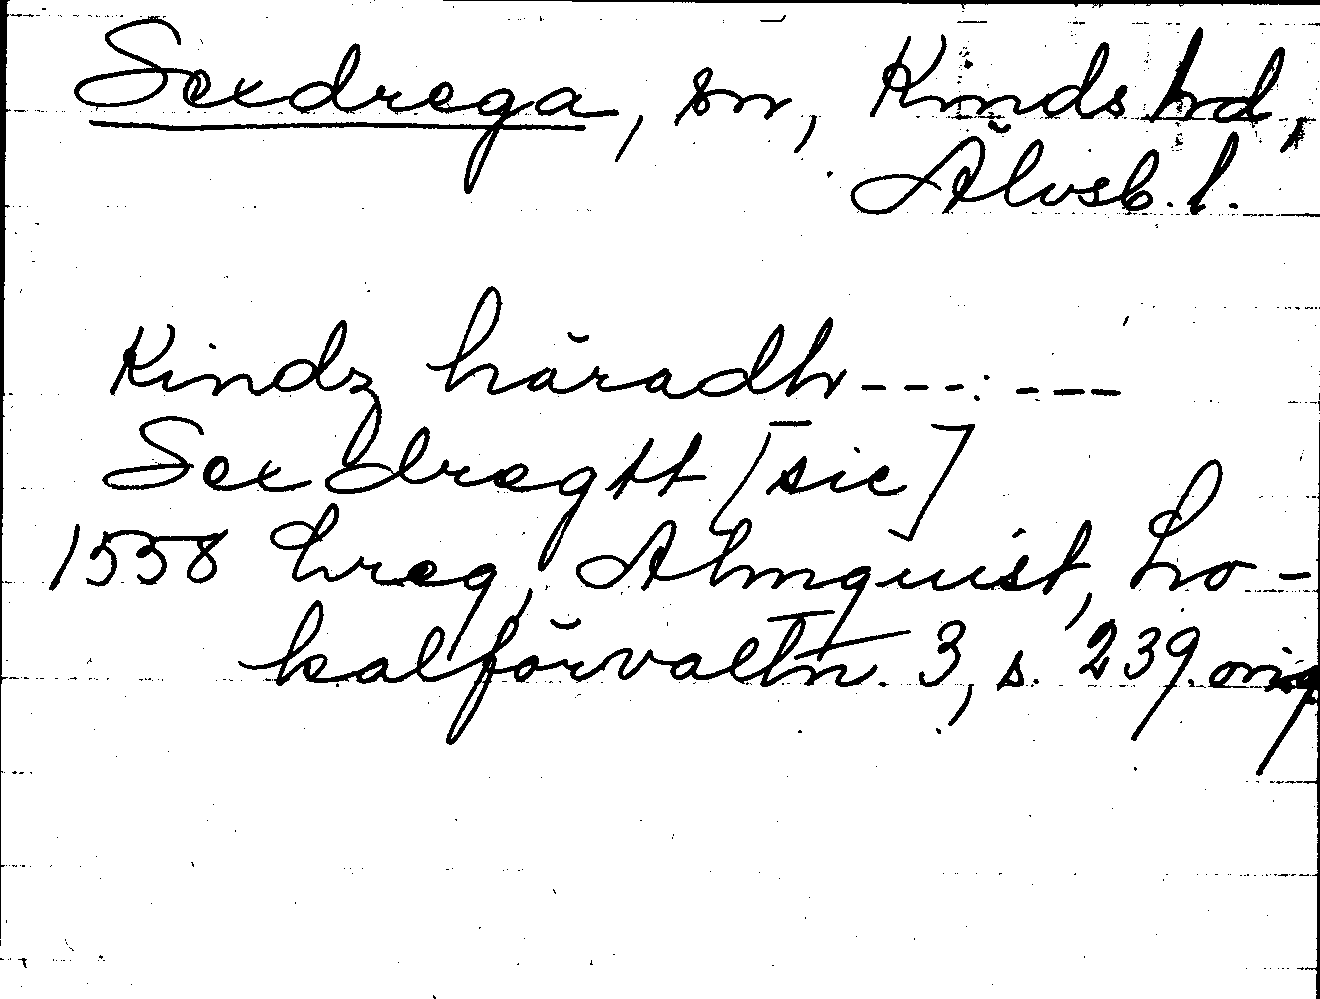 Sexdrega, sn, Kinds hd,
Älvsb. l.
Kindz häradh --- . ---
Sexdregtt [sic]
1558 Lreg, Almquist, Lo-
kalförvaltn. 3, s. 239. orig